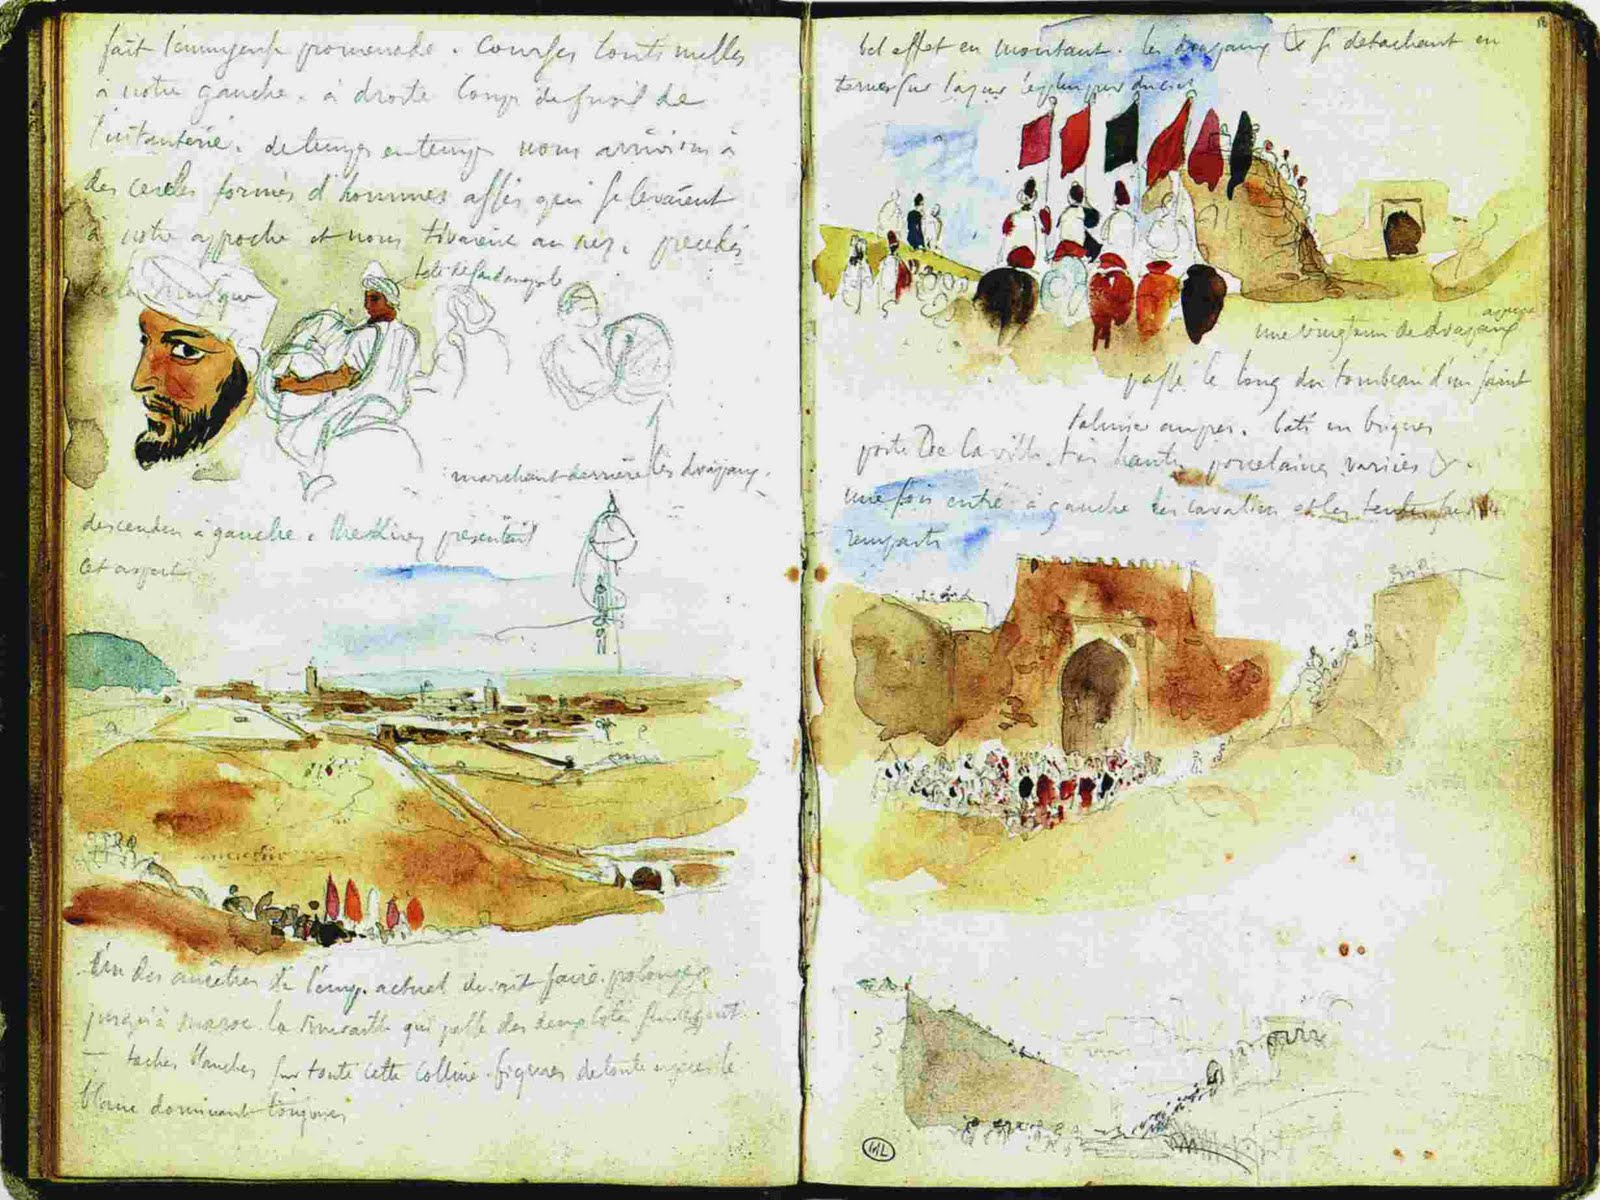 fait l'immense promenade. Courses continuelles
à notre gauche. à droite Coups de fusil de
l'infanterie. de temps en temps nous arrivions à
des cercles formés d'hommes assis qui se levaient
à notre approche et nous tiraient au nez. précédés
de la musique
tete de Sardanapale
marchant derrière les drapeaux.
descendu à gauche. Mekinez présentait
cet aspect
Un des ancêtres de l'emp. actuel devait faire prolonger
jusqu'à maroc la muraille qui passe des deux cotés
taches blanches sur toute cette colline. figures de toute le
blanc dominant toujours
18
bel effet en montant. les drapeaux &c se detachant en
terre sur l'azur le plus pur du ciel
une vingtaine de drapeaux
passé le long du tombeau d'un saint
Palmier auprès. bati en briques
porte De la ville. très haute. porcelaines variées
une fois entré à gauche les cavaliers et les tentes sur les
remparts
3
ML